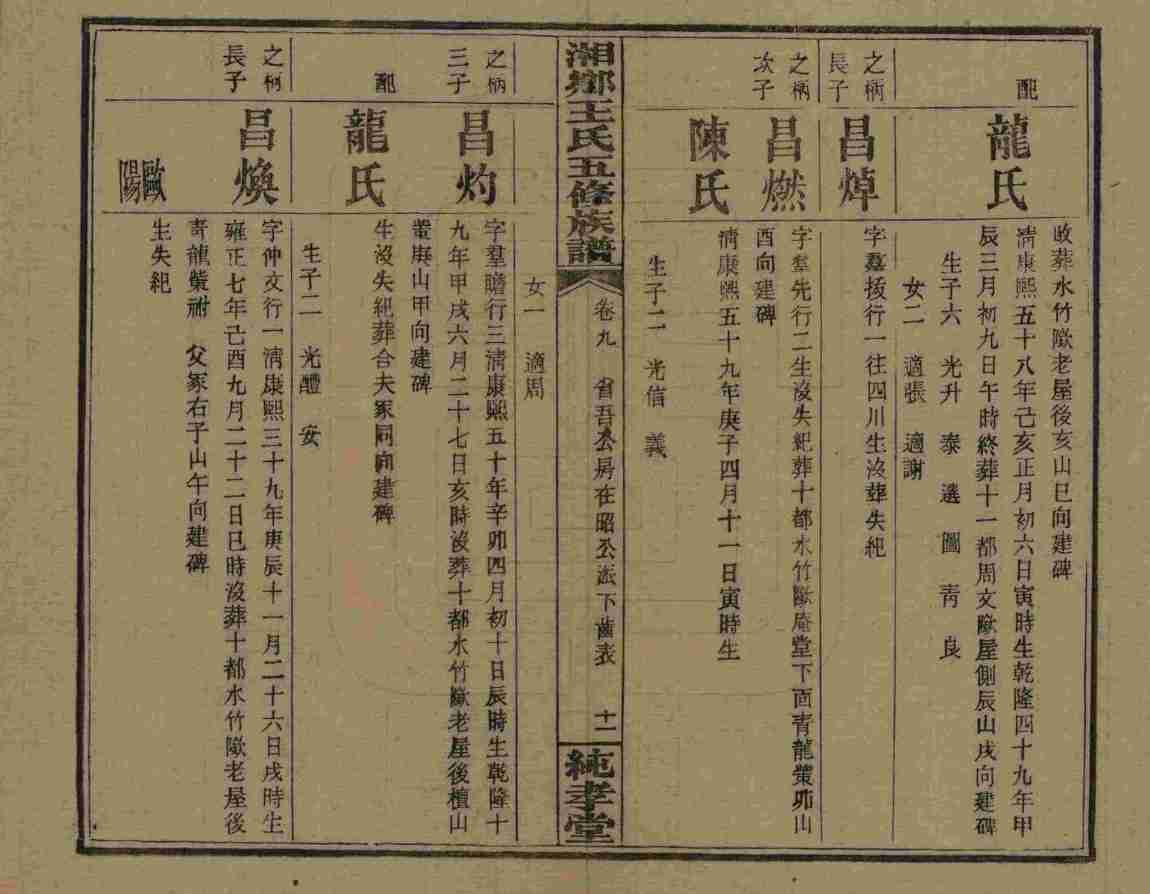 改葬水竹歘老屋後亥山巳向建碑
配
龍氏
清康熙五十八年己亥正月初六日寅時生乾隆四十九年甲
辰三月初九日午時終葬十一都周文歘屋側辰山戌向建碑
生子六 光升 泰 選 圖 靑 良
女二 適張 適謝
之柄
長子
昌焯
字羣拔行一往四川生沒葬失紀
之柄
次子
昌燃
字羣先行二生沒失紀葬十都水竹歘庵堂下面青龍嶪卯山
酉向建碑
陳氏
清康熙五十九年庚子四月十一日寅時生
生子二 光信 義
湘鄉王氏五修族譜
卷九 省吾公房在昭公派下齒表 十一
純孝堂
女一 適周
之柄
三子
昌灼
字羣瞻行三清康熙五十年辛卯四月初十日辰時生乾隆十
九年甲戌六月二十七日亥時沒葬十都水竹歘老屋後檀山
嶪庚山甲向建碑
配
龍氏
生沒失紀葬合夫冢同向建碑
生子二 光醴 安
之柄
長子
昌煥
字仲文行一清康熙三十九年庚辰十一月二十六日戌時生
雍正七年己酉九月二十二日巳時沒葬十都水竹歘老屋後
青龍嶪祔 父冢右子山午向建碑
歐陽
生失紀